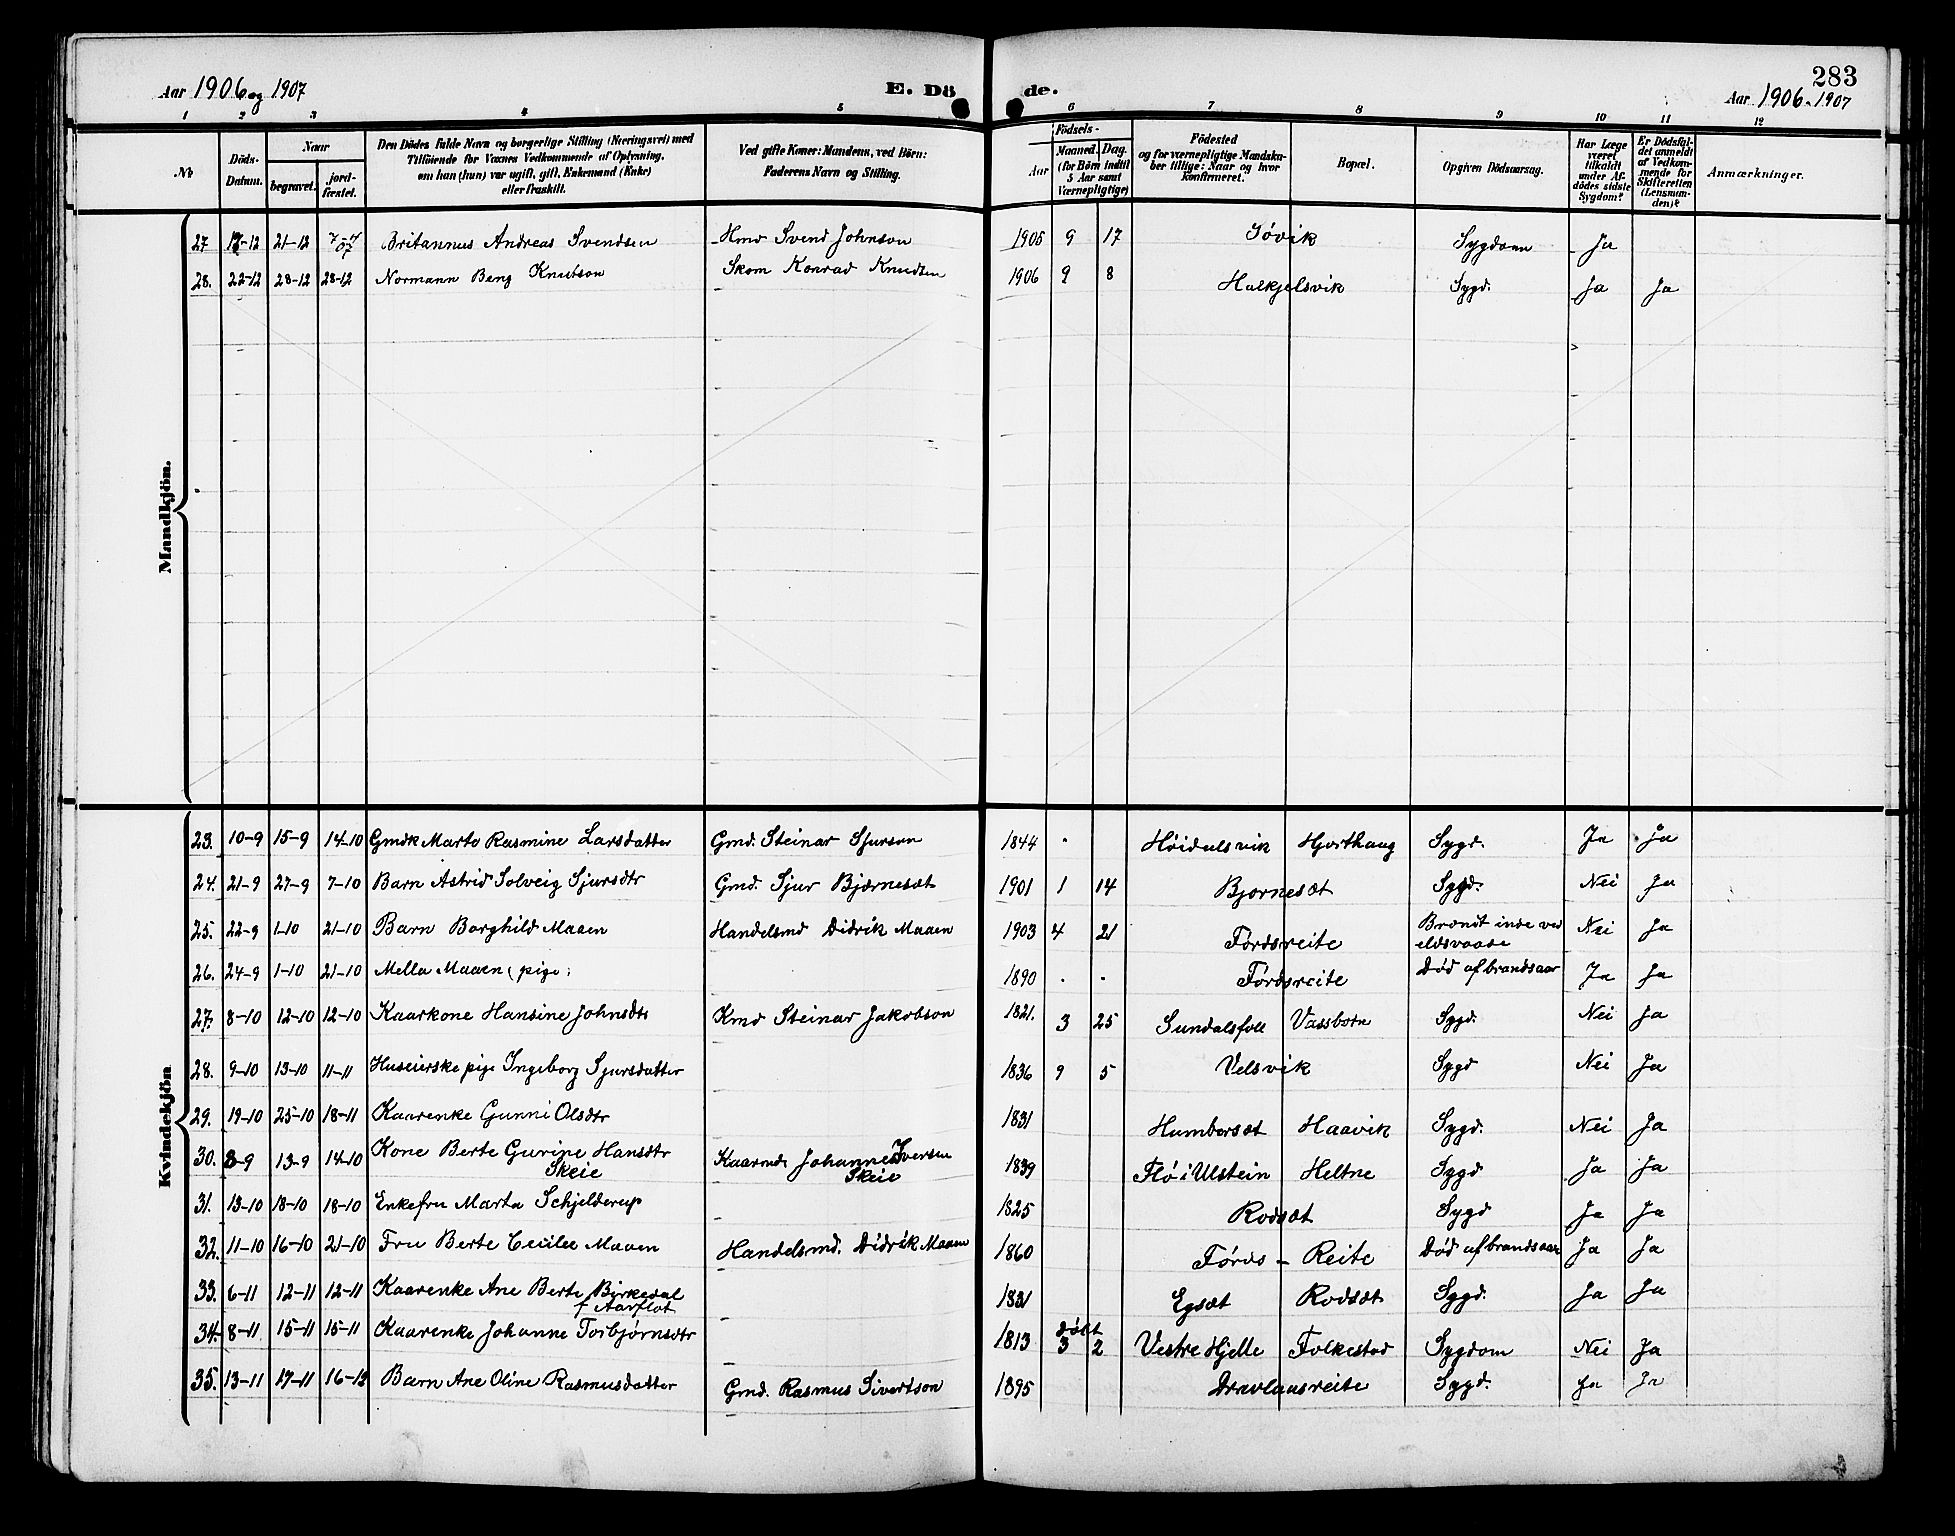 283
Aar 1906 og 1907
E. Dö de.
Aar 1906 - 1907
1 2 3 4 5 6 7 8 9 10 11 12
No
Döds-Datum.
Naar begravet. jordfæstet.
Den Dödes fulde Navn og borgerlige Stilling (Næringsvei) med
Tilföiende for Voxnes Vedkommende af Oplysning,
om han (hun) var ugift, gift, Enkemand (Enke)
eller fraskilt.
Ved gifte Koner: Mandens, ved Börn:
Faderens Navn og Stilling.
Födsels-
Aar Maaned. Dag.
(for Börn indtil
5 Aar samt
Værnepligtige)
Födested
og for værnepligtige Mandskaber tillige: Naar og hvor
konfirmeret.
Bopæl.
Opgiven Dödsaarsag.
Har Læge
været
tilkaldt
under Afdödes sidste
Sygdom?
Er Dödsfaldet anmeldt
af Vedkommende for
Skifteretten
(Lensmanden)?
Anmærkninger.
Mandkjön.
27 17-12 21-12 7-4 07 Britannus Andreas Svendsen Hmd Svend Johnson 1905 9 17 Søvik Sygdom Ja
28. 22-12 28-12 28-12 Normann Berg Knutson Skom Konrad Knudsen 1906 9 8 Halkjelsvik Sygd. Ja Ja
Kvindekjön
23. 10-9 15-9 14-10 Gmdk Marte Rasmine Larsdatter Gmd. Steinar Sjurson 1844 - Høidalsvik Hjorthaug Sygd. Ja Ja
24. 21-9 27-9 7-10 Barn Astrid Solveig Sjursdtr Gmd. Sjur Bjørneset 1901 1 14 Bjørnesæt Sygd. Nei Ja
25. 22-9 1-10 21-10 Barn Borghild Maaen Handelsmd Didrik Maaen 1903 4 21 Førdsreite Brændt inde ved
eldsvaade Nei Ja
26. 24-9 1-10 21-10 Mella Maaen (pige) 1890 - - Førdsreite Død af brandsaar Ja Ja
27. 8-10 12-10 12-10 Kaarkone Hansine Johnsdtr Kmd Steinar Jakobson 1821. 3 25 Sundalsfoll Vassbotn Sygd. Nei Ja
28. 9-10 13-10 11-11 Huseierske pige Ingeborg Sjursdatter 1836 9 5 Velsvik Sygd Nei Ja
29. 19-10 25-10 18-11 Kaarenke Gunni Olsdtr 1831 Humbersæt Haavik Sygd. Nei Ja
30. 8-9 13-9 14-10 Kone Berte Gurine Hansdtr
Skeie Kaarmd. Johannes Iversen
Skeie 1839 Flø i Ulstein Heltne Sygd Ja Ja
31. 13-10 18-10 18-10 Enkefru Marta Schjelderup 1825 Rodsæt Sygd Ja Ja
32. 11-10 16-10 21-10 Fru Berte Cecilie Maaen Handelsmd. Didrik Maaen 1860 Førds - Reite Død af brandsaar Ja Ja
33. 6-11 12-11 12-11 Kaarenke Ane Berte Birkedal
f Aarflot 1831 Egsæt Rodsæt Sygd. Ja Ja
34. 8-11 15-11 15-11 Kaarenke Johanne Torbjørnsdtr 1813 døbt 3 2 Vestre Hjelle Folkestad Sygdom Nei Ja
35. 13-11 17-11 16-12 Barn Ane Oline Rasmusdatter Gmd. Rasmus Sivertson 1895 Dravlausreite Sygd. Ja Ja